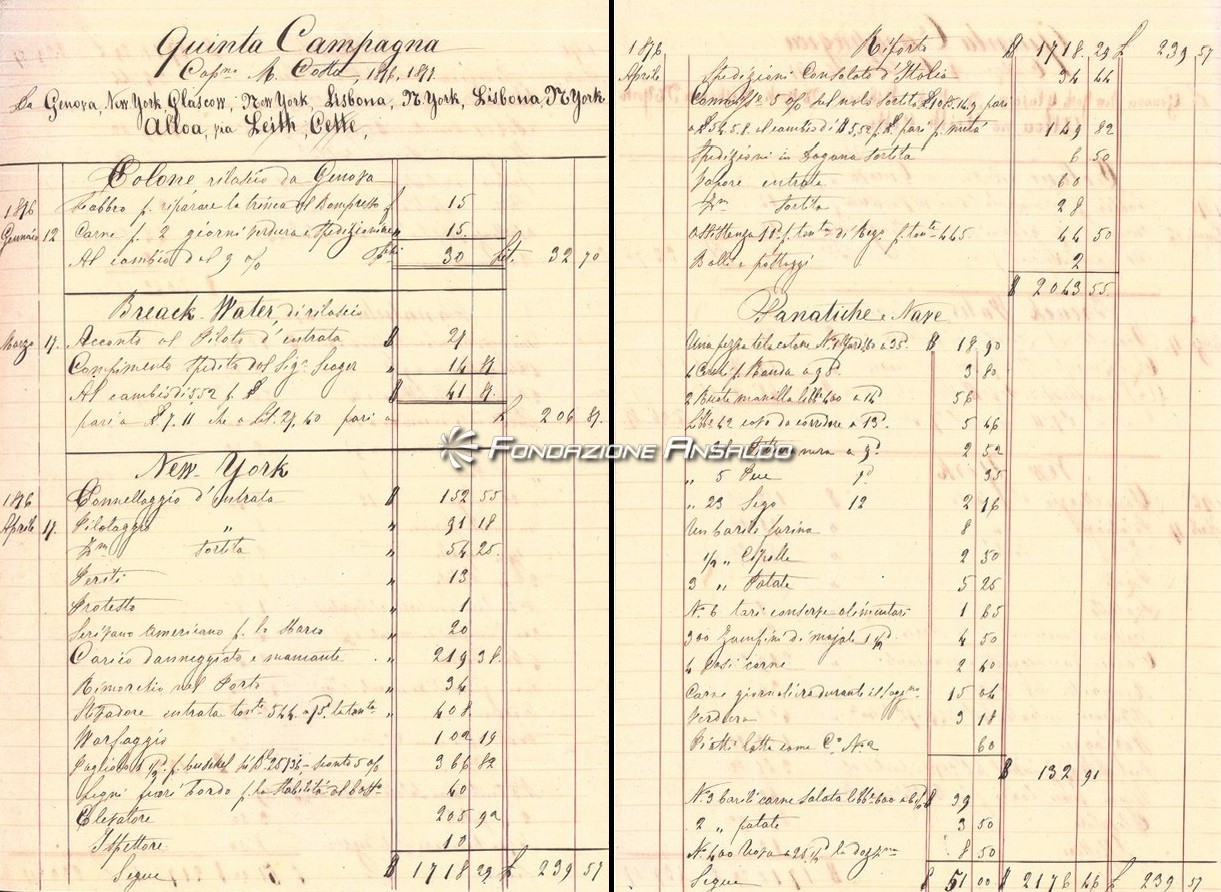 Quinta Campagna
Capno M. Cotta, 1876, 1877
Da Genova, New York, Glascow, New York, Lisbona, N. York, Lisbona, N. York
Alloa, pia Leith, Cette,
Colone, rilascio da Genova
1876 Fabbro p. riparare la trinca al Bompresso f 15
Gennaio 12 Carne p. 2 giorni verdura e spedizioni " 15
Al cambio del 9 % 30 Lit. 32 70
Breack-Water, di rilascio
Marzo 17. Acconto al Piloto d'entrata $ 27
Compimento spedito dal Sigr Seager " 14 87
Al cambio di 5,52 p. £ $ 41 87
pari a £ 7.11 che a Lit. 27,40 pari a £ 206 87
New-York
1876 Tonnellaggio d'entrata $ 152 55
Aprile 17. Pilotaggio " " 91 18
Dm Sortita " 54 25
Periti " 13
Protesto " 1
Scrivano Americano p. lo Scarico " 20
Carico danneggiato e mancante " 219 38
Rimorchio nel Porto " 34
Stivadore entrata tonte 544 a 75. la tonta " 408
Warfaggio 102 19
366 82
Legni fuori bordo p. la stabilità al bastto 40
Elevatore 205 92
Ispettore 10
Segue $ 1718 29 £ 239 57
FONDAZIONE ANSALDO
1876 Riporto $ 1718 29 £ 239 57
Aprile Spedizioni Consolato d'Italia 34 44
Commisse 5 % sul nolo sortita pari
a £ 54.5.8. al cambio di $ 5,52 p. £ pari p. metà 149 82
Spedizioni in Dogana sortita 6 50
Vapore entrata 60
Dm Sortita 28
Assistenza p. tonte di Reg. p. tonte 445. 44 50
Bolli e postaggi 2
$ 2043 55
Panatiche e Nave
Una pezza tela cotone $ 18 90
4 p. Banda a 3 80
2 Buste manilla lbbe 400 a 14 56
Libbe 42 da corridore a 13 5 46
" 28 nera a 9 2 52
" 5 Pece 7 35
" 23 Sego 12 2 76
Un barile farina 8
1/2 " Cipolle 2 50
3 " Patate 5 25
No. 6 conserve alimentari 1 65
300 Zampini di majale 4 50
4 carne 2 40
Carne giornaliera durante il soggno 15 04
Verdura 3 18
Piatti latta come Co. No 2 60
$ 132 91
No. 3 barili carne salata lbbe 600 a $ 39
2 " patate 3 50
No. 400 Uova a 25 la dozzna 8 50
Segue $ 51 00 $ 2176 46 £ 239 57